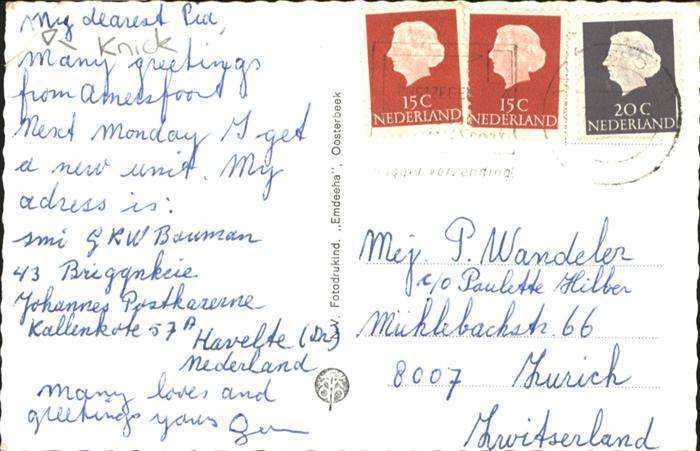 My dearest Pid,
Knick
Many greetings
from Amersfoort
Next Monday I get
a new unit. My
adress is:
smi GRW Bouman
43 Briggnkeie
Johannes Postkazerne
Kallenkote 57A
Havelte (Dr.)
Nederland
Many loves and
greetings yours
V. Fotodrukind. „Emdeeha”, Oosterbeek
15 C
NEDERLAND
15 C
NEDERLAND
20 C
NEDERLAND
verzending
Mej. P. Wandeler
c/o Paulette Hilber
Mühlebachstr. 66
8007 Zurich
Zwitserland